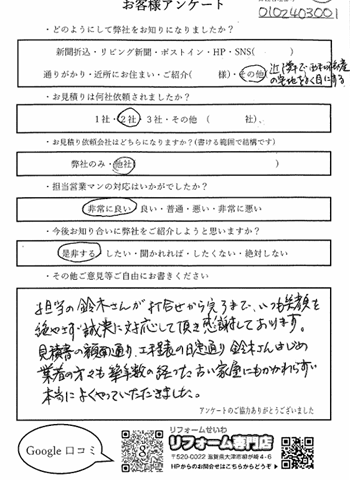 お客様アンケート
0102403001
・どのようにして弊社をお知りになりましたか?
新聞折込・リビング新聞・ポストイン・HP・SNS( )
通りがかり・近所にお住まい・ご紹介( 様)・その他
・お見積りは何社依頼されましたか?
1社・2社・3社・その他 ( 社).
・お見積り依頼会社はどちらになりますか?(書ける範囲で結構です)
弊社のみ・他社(
・担当営業マンの対応はいかがでしたか?
非常に良い・良い・普通・悪い・非常に悪い
・今後お知り合いに弊社をご紹介しようと思いますか?
是非する・したい・聞かれれば・したくない・絶対しない
・その他ご意見等ご自由にお書きください
担当の鈴木さんが打合せから完了まで、いつも笑顔を
絶やさず誠実に対応して頂き感謝しております。
見積書の額面通り、工程表の日定通り鈴木さんはじめ
業者の方々も築年数の経った古い家屋にもかかわらず
本当によくやっていただきました。
アンケートのご協力ありがとうございました
Google口コミ
リフォームせいわ
リフォーム専門店
〒520-0022 滋賀県大津市柳が崎4-6
HPからのお問合せはこちらからどうぞ